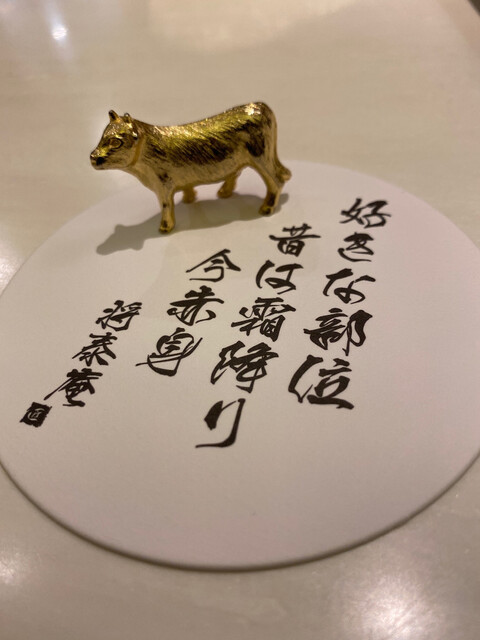 好きな部位
昔は霜降り
今赤身
将泰庵